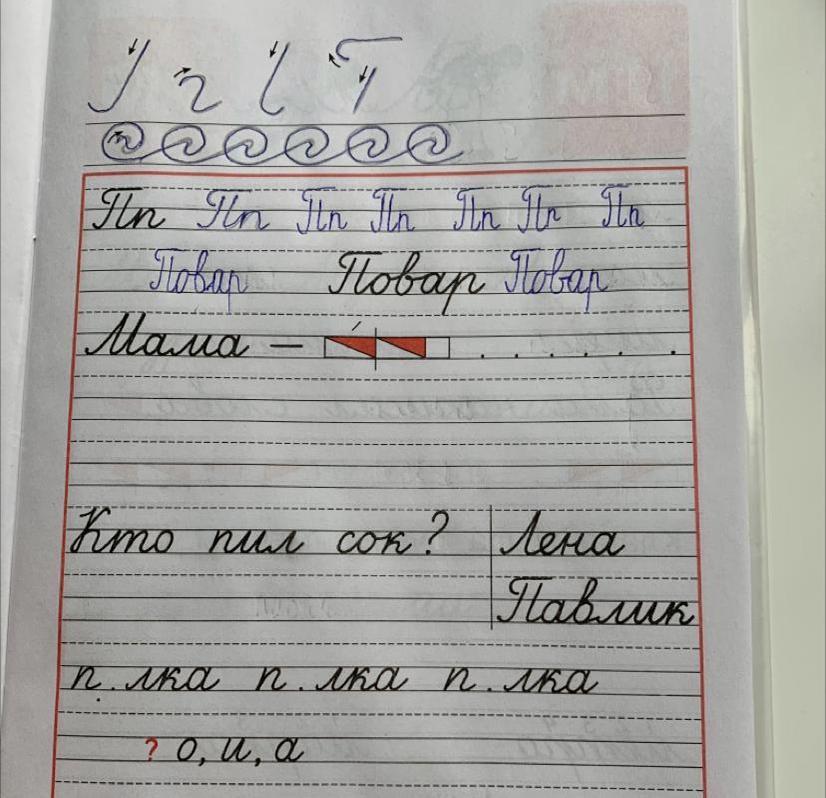 Пп Пп Пп Пп Пп Пп Пп
Повар Повар Повар
Мама — . . . . . .
Кто пил сок? Лена
Павлик
п.лка п.лка п.лка
? о, и, а